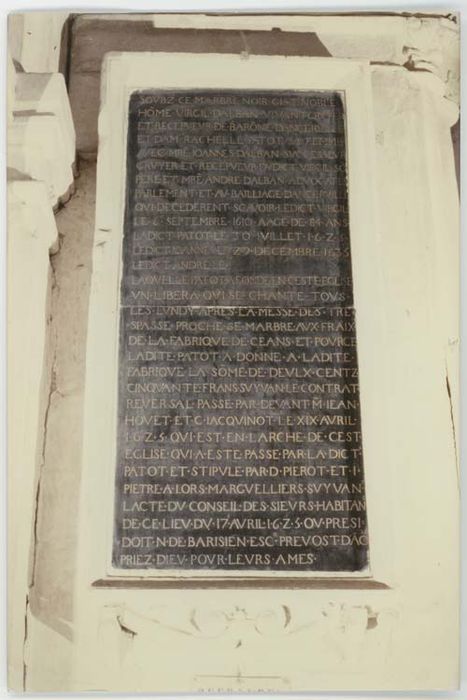 SOVBZ·CE·MARBRE·NOIR·GIST·NOBLE
HÔME·VIRGIL·DALBAN·VIVANT
ET·RECEPVEUR·DE·BARÔNE·DANCERVI
ET·DAM·RACHELLE·PATOT·SA·FEMME
AVEC·MRE·IOANNES·DALBAN·SVCCESSEVR
GRVYER·ET·RECEPVEUR·DVDICT·VIRGIL·SO
PERE·ET·MRE·ANDRE·DALBAN·ADVOCAT
PARLEMENT·ET·AV·BAILLIAGE·DANCERVILLE
QVI·DECEDERENT·SCAVOIR·LEDICT·VIRGIL
LE·6·SEPTEMBRE·1610·AAGE·DE·84·ANS
LADICT·PATOT·LE·30·IVILLET·1·6·2·5
LEDICT·IOANNES·LE·29·DECEMBRE·1635
LEDICT·ANDRE·LE
LAQVELLE·PATOT·A·FONDE·EN·CESTE·EGLISE
VN·LIBERA·QVI·SE·CHANTE·TOVS
LES·LVNDY·APRES·LA·MESSE·DES·TRES
PASSE·PROCHE·SE·MARBRE·AVX·FRAIX
DE·LA·FABRIQVE·DE·CEANS·ET·POVRCE
LADITE·PATOT·A·DONNE·A·LADITE·
FABRIQVE·LA·SÔME·DE·DEVLX·CENTZ
CINQVANTE·FRANS·SVYVAN·LE·CONTRAT
REVERSAL·PASSE·PAR·DEVANT·M·IEAN
HOVET·ET·C·IACQVINOT·LE·XIX·AVRIL·
1·6·2·5·QVI·EST·EN·LARCHE·DE·CEST
EGLISE·QVI·A·ESTE·PASSE·PAR·LA·DICT
PATOT·ET·STIPVLE·PAR·D·PIEROT·ET·I·
PIETRE·A·LORS·MARGVELLIERS·SVYVAN
LACTE·DV·CONSEIL·DES·SIEVRS·HABITAN
DE·CE·LIEV·DV·17·AVRIL·1·6·2·5·OV·PRESI
DOIT·N·DE·BARISIEN·ESC·PREVOST·DÂC
PRIEZ·DIEV·POVR·LEVRS·AMES·